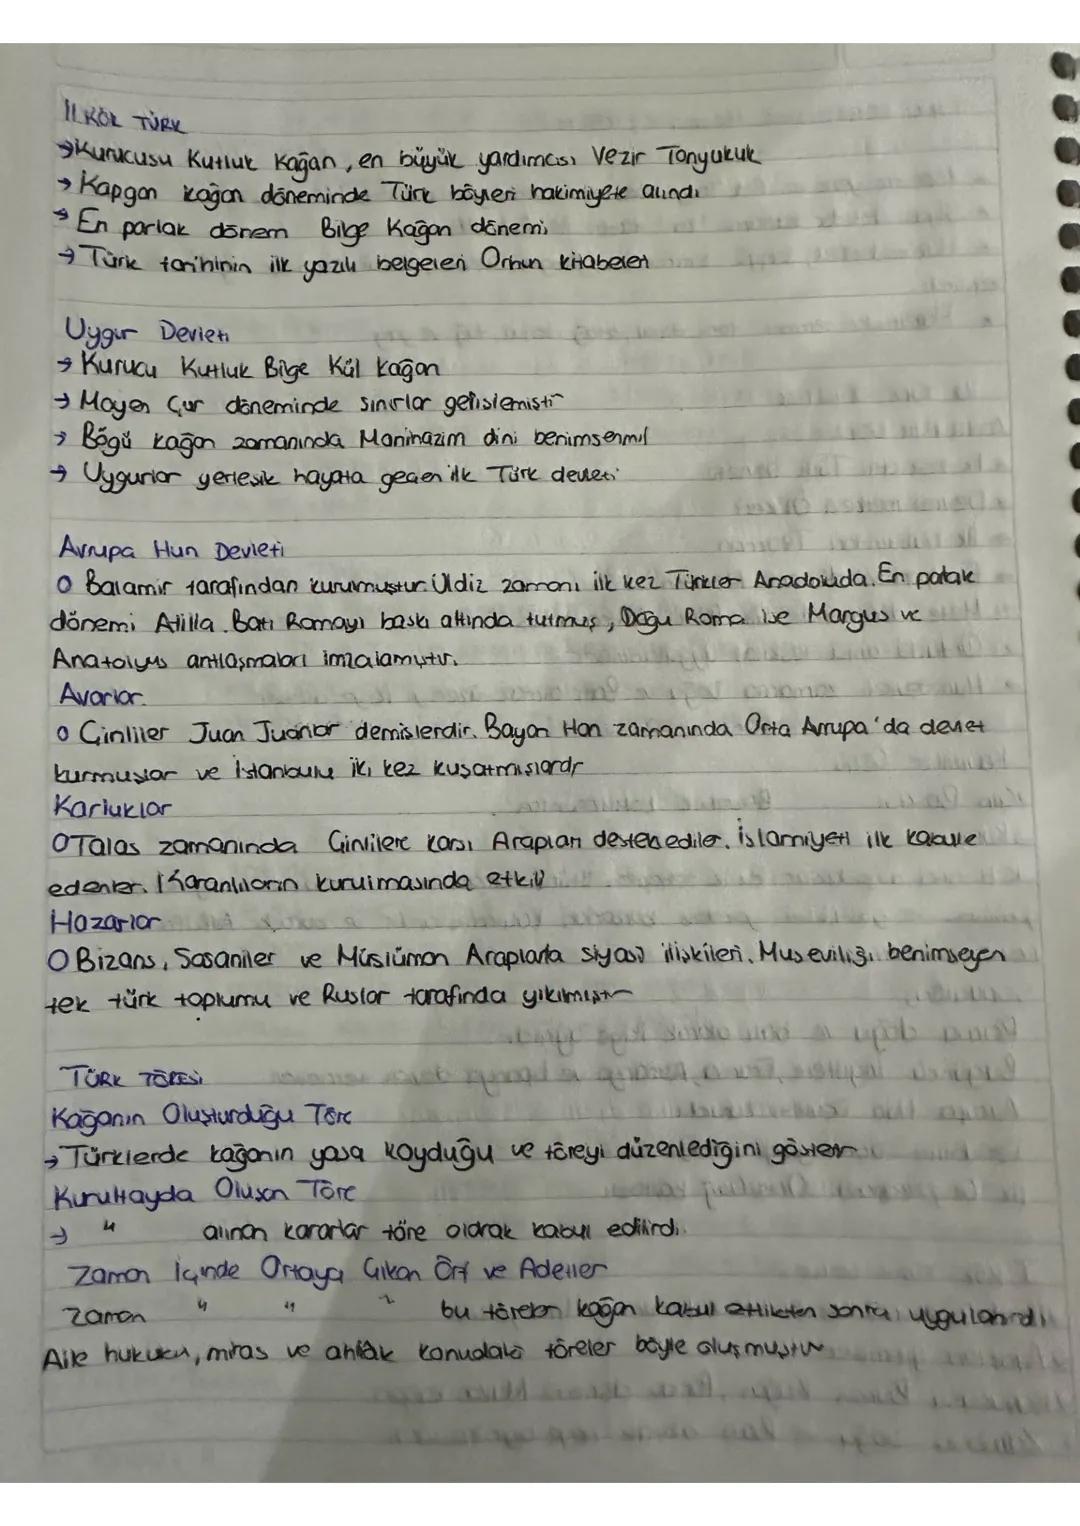 II. KÖK TÜRK
→Kurucusu Kutluk Kağan, en büyük yardımcısı Vezir Tonyukuk
→ Kapgan kağan döneminde Türk boyları hakimiyete alındı
→ En parlak dönem Bilge Kağan dönemi
→ Türk tarihinin ilk yazılı belgeleri Orhun kitabeleri
Uygur Devleti
→ Kurucu Kutluk Bilge Kül kağan
→ Moyen Çur döneminde sınırlar genişlemiştir
→ Bögü kağan zamanında Manihaizm dini benimsenmiş
→ Uygurlar yerleşik hayata geçen ilk Türk devleti
Avrupa Hun Devleti
O Balamir tarafından kurulmuştur. Uldiz zamanı ilk kez Türkler Anadoluda. En parlak
dönemi Atilla. Batı Romayı baskı altında tutmuş, Doğu Roma ise Margus ve
Anatolyus antlaşmaları imzalamıştır.
Avarlar
O Çinliler Juan Juanlar demişlerdir. Bayan Han zamanında Orta Avrupa'da devlet
kurmuşlar ve İstanbulu iki kez kuşatmışlardır
Karluklar
O Talas zamanında Çinlilere karşı Arapları desteklediler. İslamiyeti ilk kabule
edenler. Karahanlıların kurulmasında etkili
Hazarlar
O Bizans, Sasaniler ve Müslüman Araplarla siyasi ilişkileri. Museviliği benimseyen
tek türk toplumu ve Ruslar tarafında yıkılmıştır
TÜRK TÖRESİ
Kağanın Oluşturduğu Töre
→ Türklerde kağanın yasa koyduğu ve töreyi düzenlediğini gösterir
Kurultayda Oluşan Töre
→ " alınan kararlar töre olarak kabul edilirdi.
Zaman İçinde Ortaya Çıkan Örf ve Adetler
Zaman " " " bu töreler kağan kabul ettikten sonra uygulanırdı
Aile hukuku, miras ve ahlâk konudaki töreler böyle oluşmuştur